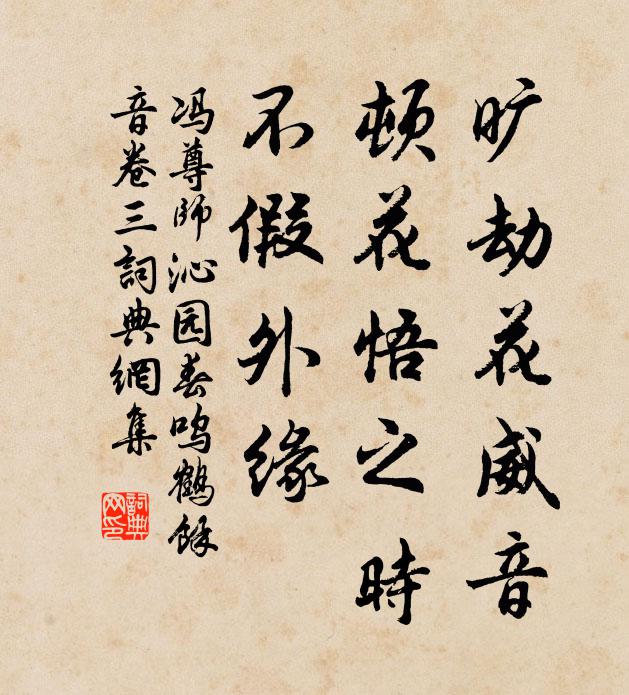 旷劫花威音
顿花悟之時
不假外缘
冯尊師沁园春鸣鹤餘
音卷三詞典網集
詞典网印